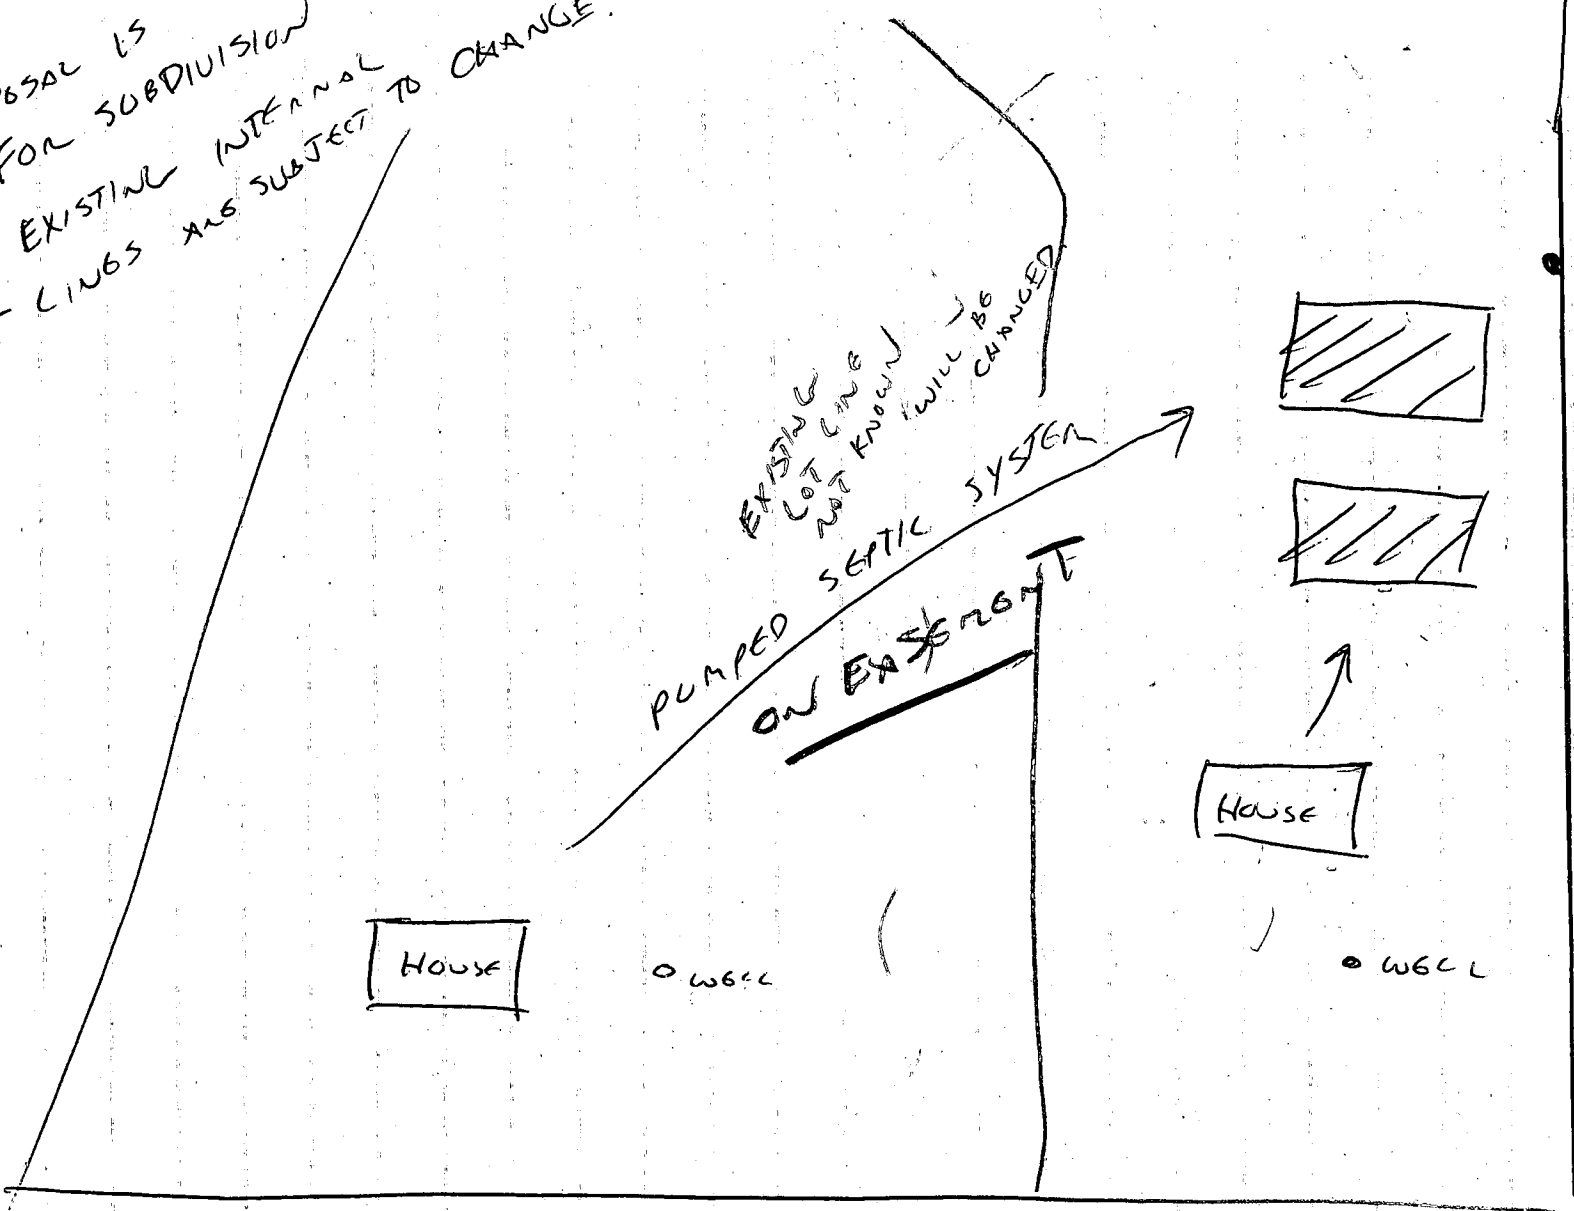 IS
FOR SUBDIVISION
EXISTING INTERNAL
LINES ARE SUBJECT TO CHANGE.
EXISTING
LOT LINE
NOT KNOWN
WILL BE
CHANGED
PUMPED SEPTIC SYSTEM
ON EASEMENT
HOUSE
HOUSE
WELL
WELL